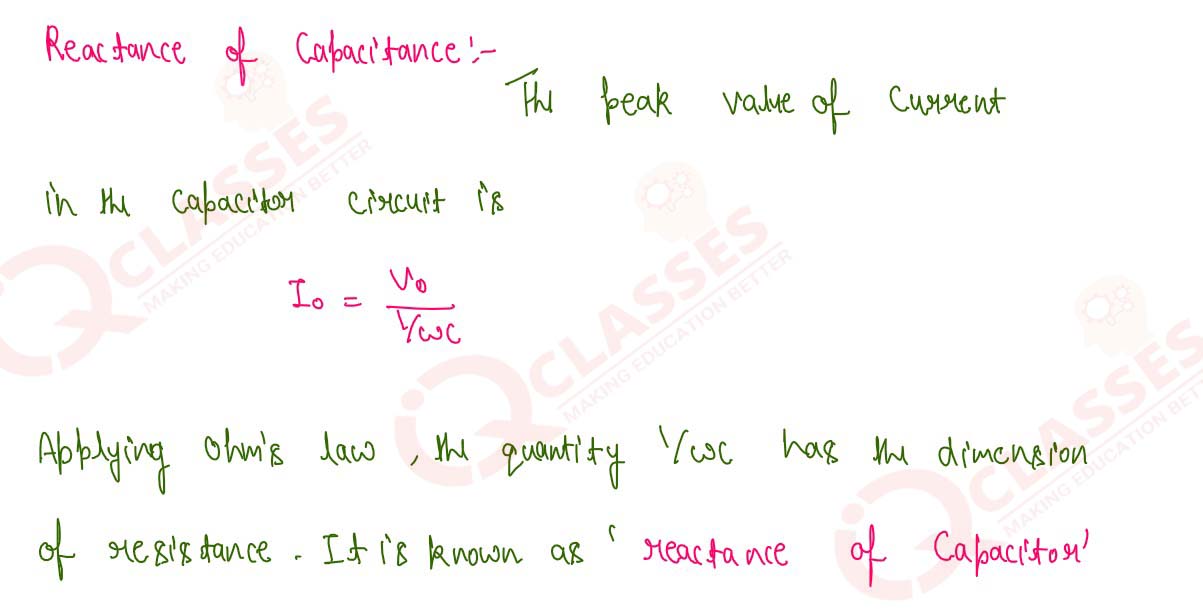 Reactance of Capacitance :-
The peak value of current
in the capacitor circuit is
I₀ = V₀ / 1/ωC
Applying Ohm's law, the quantity 1/ωC has the dimension
of resistance. It is known as 'reactance of Capacitor'
iQ CLASSES
MAKING EDUCATION BETTER
iQ CLASSES
MAKING EDUCATION BETTER
iQ CLASSES
MAKING EDUCATION BETTER